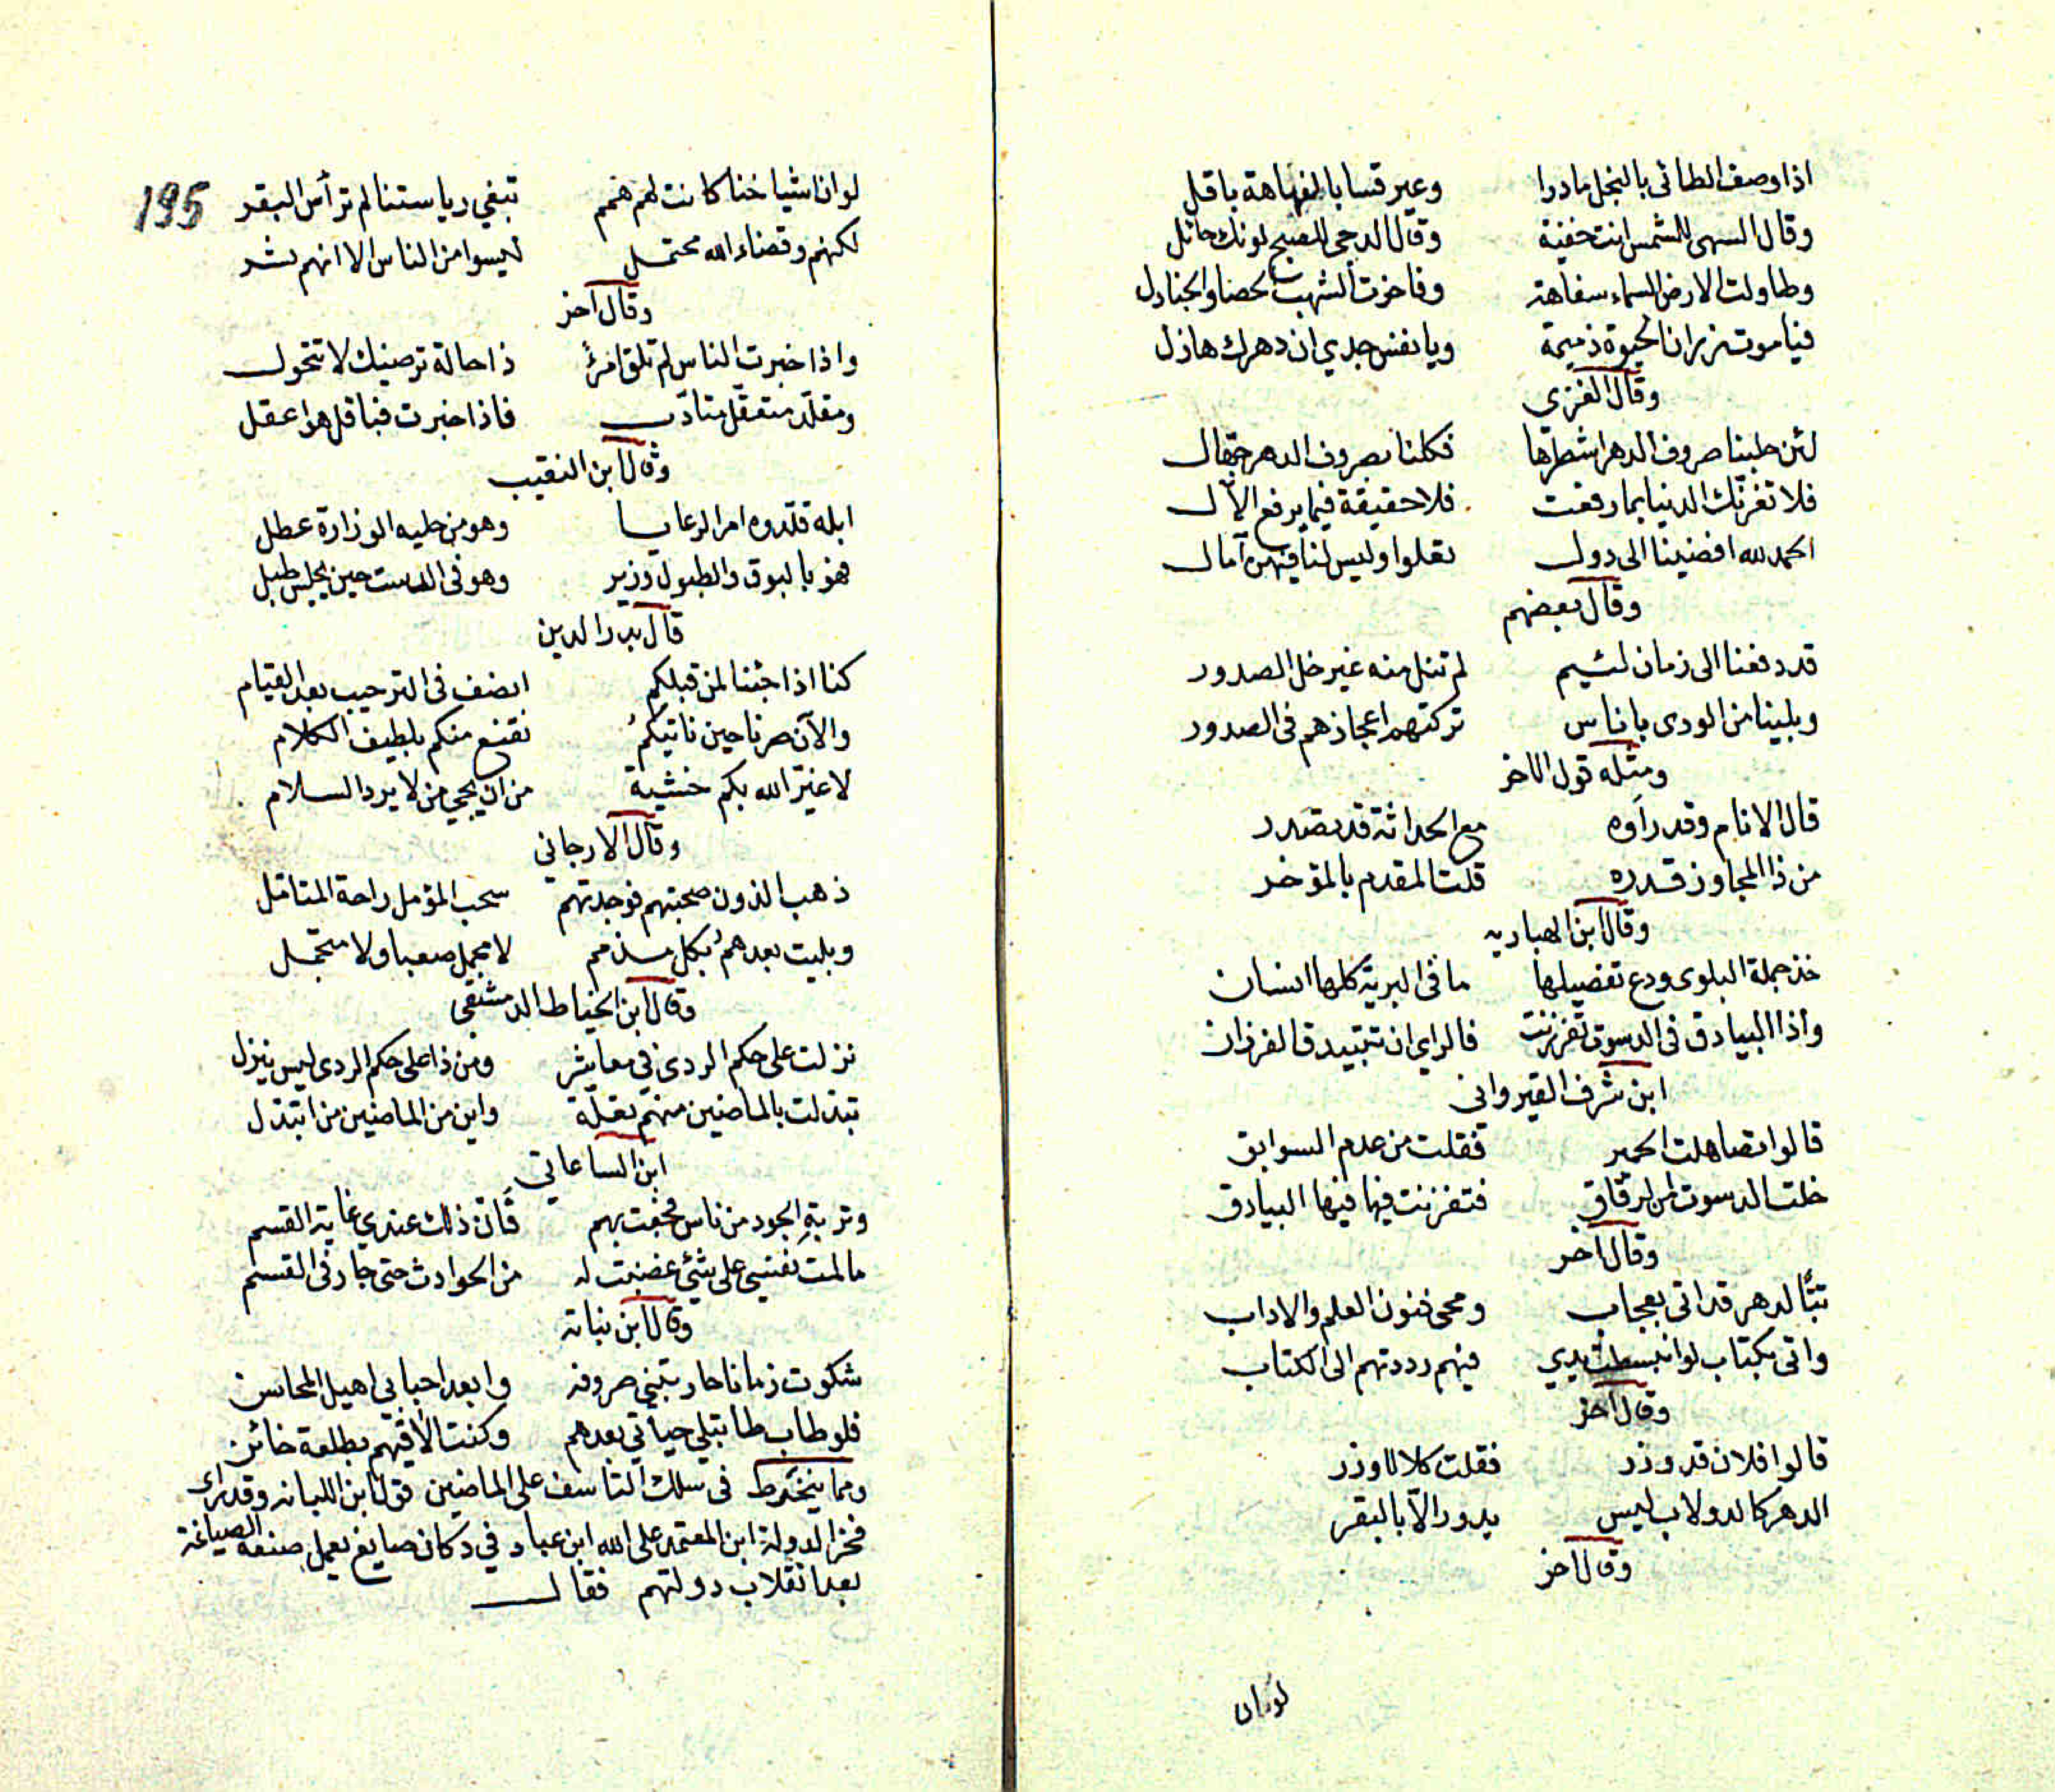 اذا وصف الطائى بالبخل مادرا وعير قسا بالفهاهة باقل
وقال السهى للشمس انت خفية وقال الدجى للصبح لونك حائل
وطاولت الارض السماء سفاهة وفاخرت الشهب الحصا والجنادل
فيا موت زر ان الحيوة ذميمة ويا نفس جدي ان دهرك هازل
وقال الغزى
لئن حلبنا صروف الدهر اشطرها فكلنا بصروف الدهر جهال
فلا تغرنك الدنيا بما رفعت فلا حقيقة فيما يرفع الآل
الحمد لله افضينا الى دول تعلوا وليس لنا فيهن آمال
وقال بعضهم
قد دفعنا الى زمان لئيم لم ننل منه غير غل الصدور
وبلينا من الورى باناس تركتهم اعجازهم فى الصدور
ومثله قول الاخر
قال الانام وقد رأوه مع الحداثة قد تصدر
من ذا المجاوز قدره قلت المقدم بالمؤخر
وقال ابن الهباريه
خذ جملة البلوى ودع تفصيلها ما فى البرية كلها انسان
واذا البيادق فى الدسوت تفرزنت فالراي ان تتبيدق الفرزان
ابن شرف القيروانى
قالوا تصاهلت الحمير فقلت من عدم السوابق
خلت الدسوت من الرقاق فتفرزنت فيها فيها البيادق
وقال آخر
تبًّا لدهر قد اتى بعجاب ومحى فنون العلم والاداب
واتى بكتاب لو انبسطت يدي فيهم رددتهم الى الكتاب
وقال آخر
قالوا فلان قد وزر فقلت كلا لا وزر
الدهر كالدولاب ليس يدور الاّ بالبقر
وقال آخر
لو ان
195
لو ان اشياخنا كانت لهم همم تبغي رياستنا لم ترأس البقر
لكنهم وقضاء الله محتمل ليسوا من الناس الا انهم بشر
وقال آخر
واذا خبرت الناس لم تلق امرءً ذا حالة ترضيك لا تتحول
ومقلّد متعقّل متادّب فاذا خبرت فباقل هو اعقل
وقال ابن النقيب
ابله قلدوه امر الرعايا وهو من حليه الوزارة عطل
فهو بالبوق والطبول وزير وهو فى الدست حين يجلس طبل
قال بدر الدين
كنا اذا جئنا لمن قبلكم انصف فى الترحيب بعد القيام
والآن صرنا حين ناتيكم نقنع منكم بلطيف الكلام
لا غيّر الله بكم خشية من ان يجي من لا يرد السلام
وقال الارجاني
ذهب الذون صحبتهم فوجدتهم سحب المؤمل راحة المتامل
وبليت بعدهم بكل مذمم لا مجمل صعبا ولا متجمل
وقال ابن الخياط الدمشقي
نزلت على حكم الردى في معاشر ومن ذا على حكم الردى ليس ينزل
تبذلت بالماضين منهم تعلة واين من الماضين من اتبذل
ابن الساعاتي
وتربةِ الجود من ناس فجعت بهم فان ذلك عندي غاية القسم
ما لمت نفسي على شئ غضبت له من الحوادث حتى جار فى القسم
وقال ابن نباته
شكوت زمانا حاربتني صروفه وابعد احبابي اهيل المحاسن
فلو طاب طابت لي حياتي بعدهم وكنت الاقيهم بطلعة خائن
ومما ينخرط فى سلك التاسف على الماضين قول ابن اللبانه وقد رأى
فخر الدولة ابن المعتمد على الله ابن عباد في دكان صايغ يعمل صنعة الصياغة
بعد انقلاب دولتهم فقال